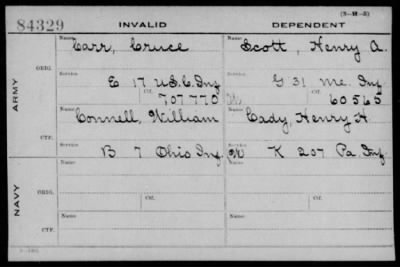 (3-H-3)
84329 INVALID DEPENDENT
Name: Name:
Carr, Cruce Scott, Henry A.
ORIG. Service Service
E 17 U.S.C. Inf G 31 Me. Inf.
Ctf. Ctf.
707770 W 60565
ARMY
Name Name
Connell, William Cady, Henry H.
CTF. Service Service
B 7 Ohio Inf. W K 207 Pa Inf.
Name Name
ORIG.
Ctf. Ctf.
NAVY
Name Name
CTF.